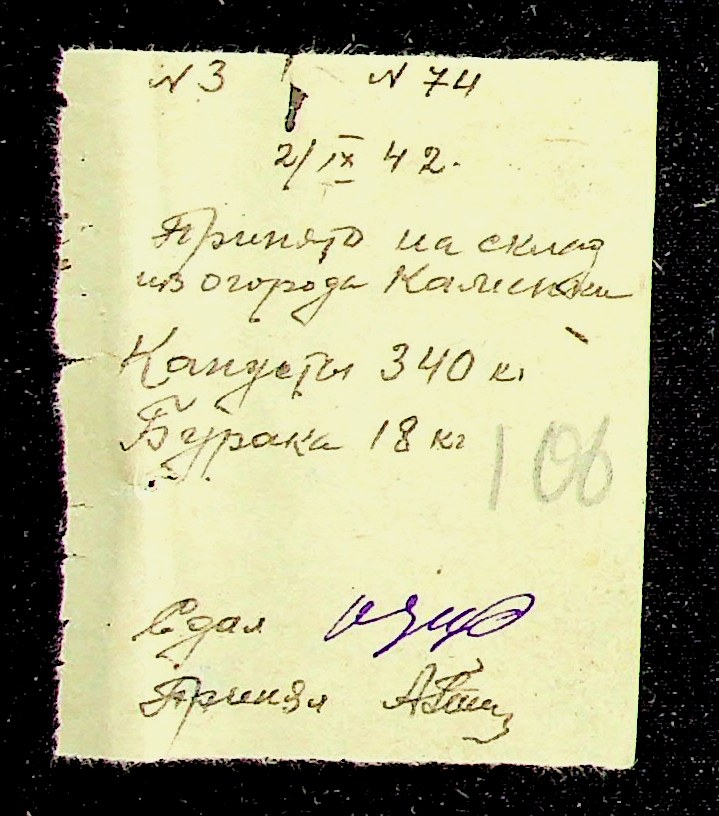 N 3 N 74
2/IX 42.
Принято на склад
из огорода Калинки
Капусты 340 кг
Бурака 18 кг
106
Сдал
Принял